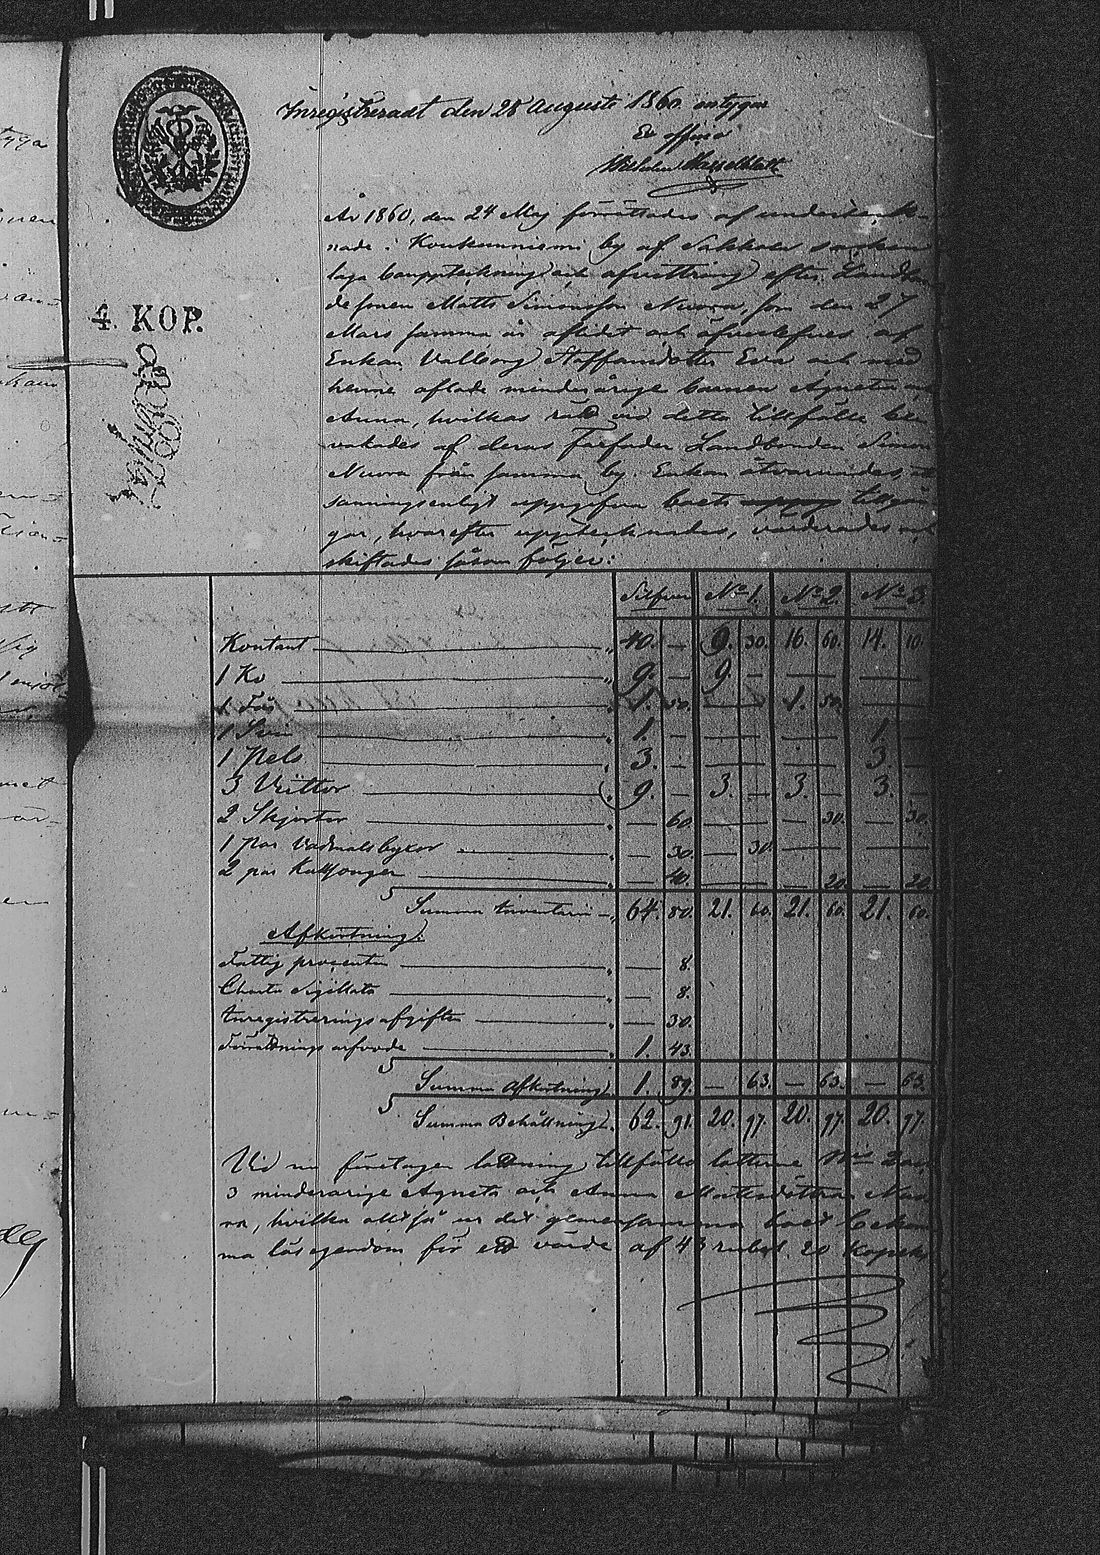 Inregistreradt den 28 Augusti 1860 intygar
Ex officio
Wilhelm Hasselblatt
4. KOP.
År 1860, den 24 Maj förrättades af underteck-
nade i Konkanniemi by af Sakkola socken
laga bouppteckning och afvittring efter Landbon-
desonen Matts Simonsson Nuora, som den 27
Mars samma år aflidit och öfverlefves af
Enkan Valborg Staffansdotter Eva och med
henne aflade minderårige barnen Agneta och
Anna, hvilkas rätt vid detta tillfälle be-
vakades af deras Farfader Landbonden Simon
Nuora från samma by. Enkan åtvarnades, att
sanningsenligt uppgifva boets tillgån-
gar, hvarefter upptecknades, värderades och
skiftades såsom följer:
Silfver No 1. No 2. No 3.
Kontant 40. — 9. 30. 16. 60. 14. 10.
1 Ko 9. — 9. —
1 Får 1. 50. 1. 50.
1 Svin 1. — 1. —
1 Pels 3. — 3. —
3 Vittor 9. — 3. — 3. — 3. —
2 Skjortor — 60. — 30. — 30.
1 par Vadmalsbyxor — 30. — 30.
2 par Kalsonger — 40. — 20. — 20.
Summa Inventarii 64. 80. 21. 60. 21. 60. 21. 60.
Afkortning:
Fattig procenten — 8.
Charta Sigillata — 8.
Inregistrerings afgiften — 30.
Förrättnings arfvode 1. 43.
Summa Afkortning 1. 89. — 63. — 63. — 63.
Summa Behållning 62. 91. 20. 97. 20. 97. 20. 97.
Vid nu företagen lottning tillföllo lotterne No 2 och
3 minderårige Agneta och Anna Mattsdöttrar Nuo-
ra, hvilka alltså ur det gemensamma boet bekom-
ma lösegendom för ett värde af 43 rubel 20 kopek